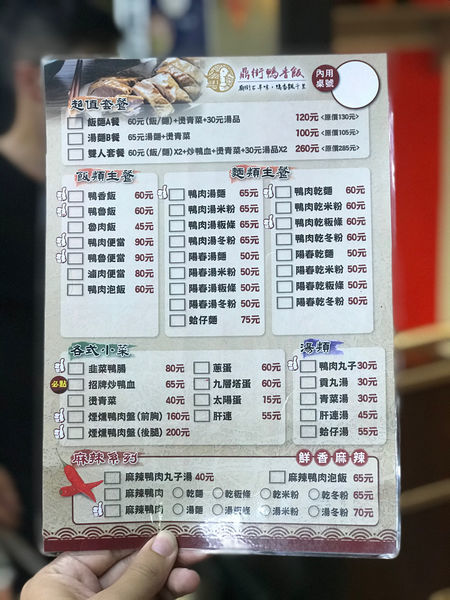 鼎街鴨香飯
內用
桌號
超值套餐
飯麵A餐 60元(飯/麵)+燙青菜+30元湯品 120元<原價130元>
湯麵B餐 65元湯麵+燙青菜 100元<原價105元>
雙人套餐 60元(飯/麵)X2+炒鴨血+燙青菜+30元湯品X2 260元<原價285元>
飯類主餐
鴨香飯 60元
鴨魯飯 60元
魯肉飯 45元
鴨肉便當 90元
鴨魯便當 90元
滷肉便當 80元
鴨肉泡飯 60元
麵類主餐
鴨肉湯麵 65元
鴨肉湯米粉 65元
鴨肉湯粄條 65元
鴨肉湯冬粉 65元
陽春湯麵 50元
陽春湯米粉 50元
陽春湯粄條 50元
陽春湯冬粉 50元
蛤仔麵 75元
鴨肉乾麵 60元
鴨肉乾米粉 60元
鴨肉乾粄條 60元
鴨肉乾冬粉 60元
陽春乾麵 50元
陽春乾米粉 50元
陽春乾粄條 50元
陽春乾冬粉 50元
各式小菜
韭菜鴨腸 80元
必點
招牌炒鴨血 65元
燙青菜 40元
煙燻鴨肉盤(前胸) 160元
煙燻鴨肉盤(後腿) 200元
蔥蛋 60元
九層塔蛋 60元
太陽蛋 15元
肝連 55元
湯類
鴨肉丸子 30元
貢丸湯 30元
青菜湯 30元
肝連湯 45元
蛤仔湯 55元
麻辣系列
鮮香麻辣
麻辣鴨肉丸子湯 40元
麻辣鴨肉泡飯 65元
麻辣鴨肉 乾麵 乾粄條 乾米粉 乾冬粉 65元
麻辣鴨肉 湯麵 湯粄條 湯米粉 湯冬粉 70元